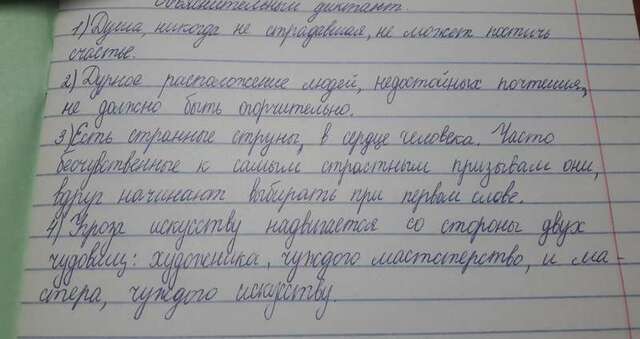 Объяснительный диктант.
1) Душа, никогда не страдавшая, не может постичь
счастье.
2) Дурное расположение людей, недостойных почтения,
не должно быть огорчительно.
3) Есть странные струны, в сердце человека. Часто
бесчувственные к самым страстным призывам они,
вдруг начинают вибирать при первом слове.
4) Угроза искусству надвигается со стороны двух
чудовищ: художника, чуждого мастоперство, и ма-
стера, чуждого искусству.